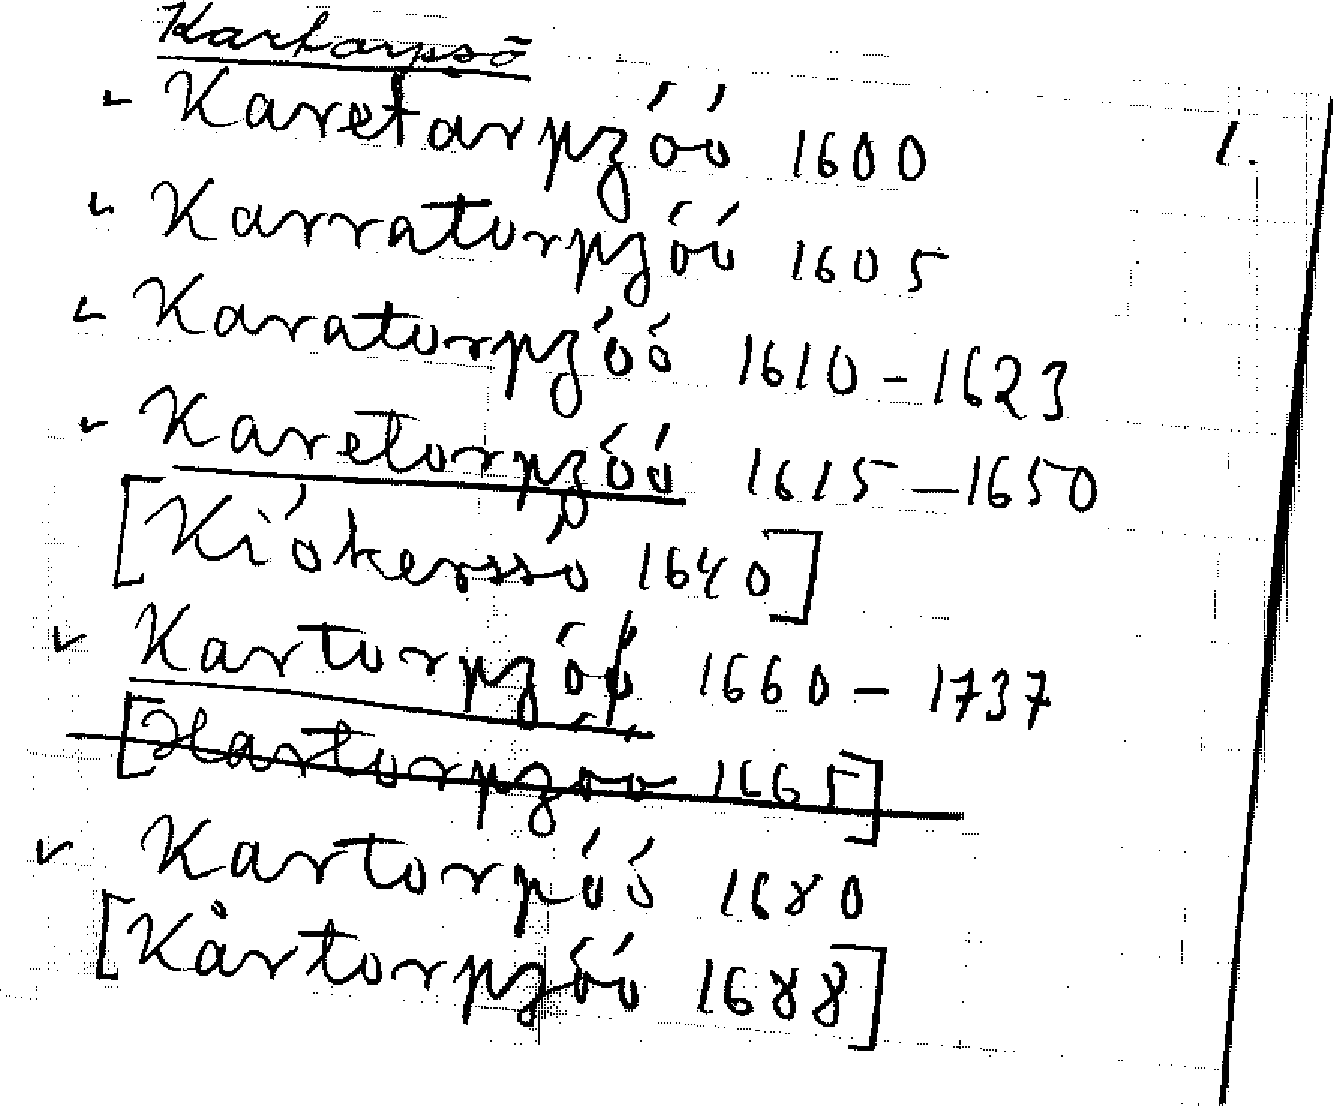 Kartorpsö
Karetarpzóó 1600 1.
Karratorpzóó 1605
Karatorpzóó 1610-1623
Karetorpzóó 1615-1650
[Kiókerssó 1640]
Kartorpzóó 1660-1737
[Kartorpzoo 1665]
Kartorpóó 1680
[Kårtorpzóó 1688]